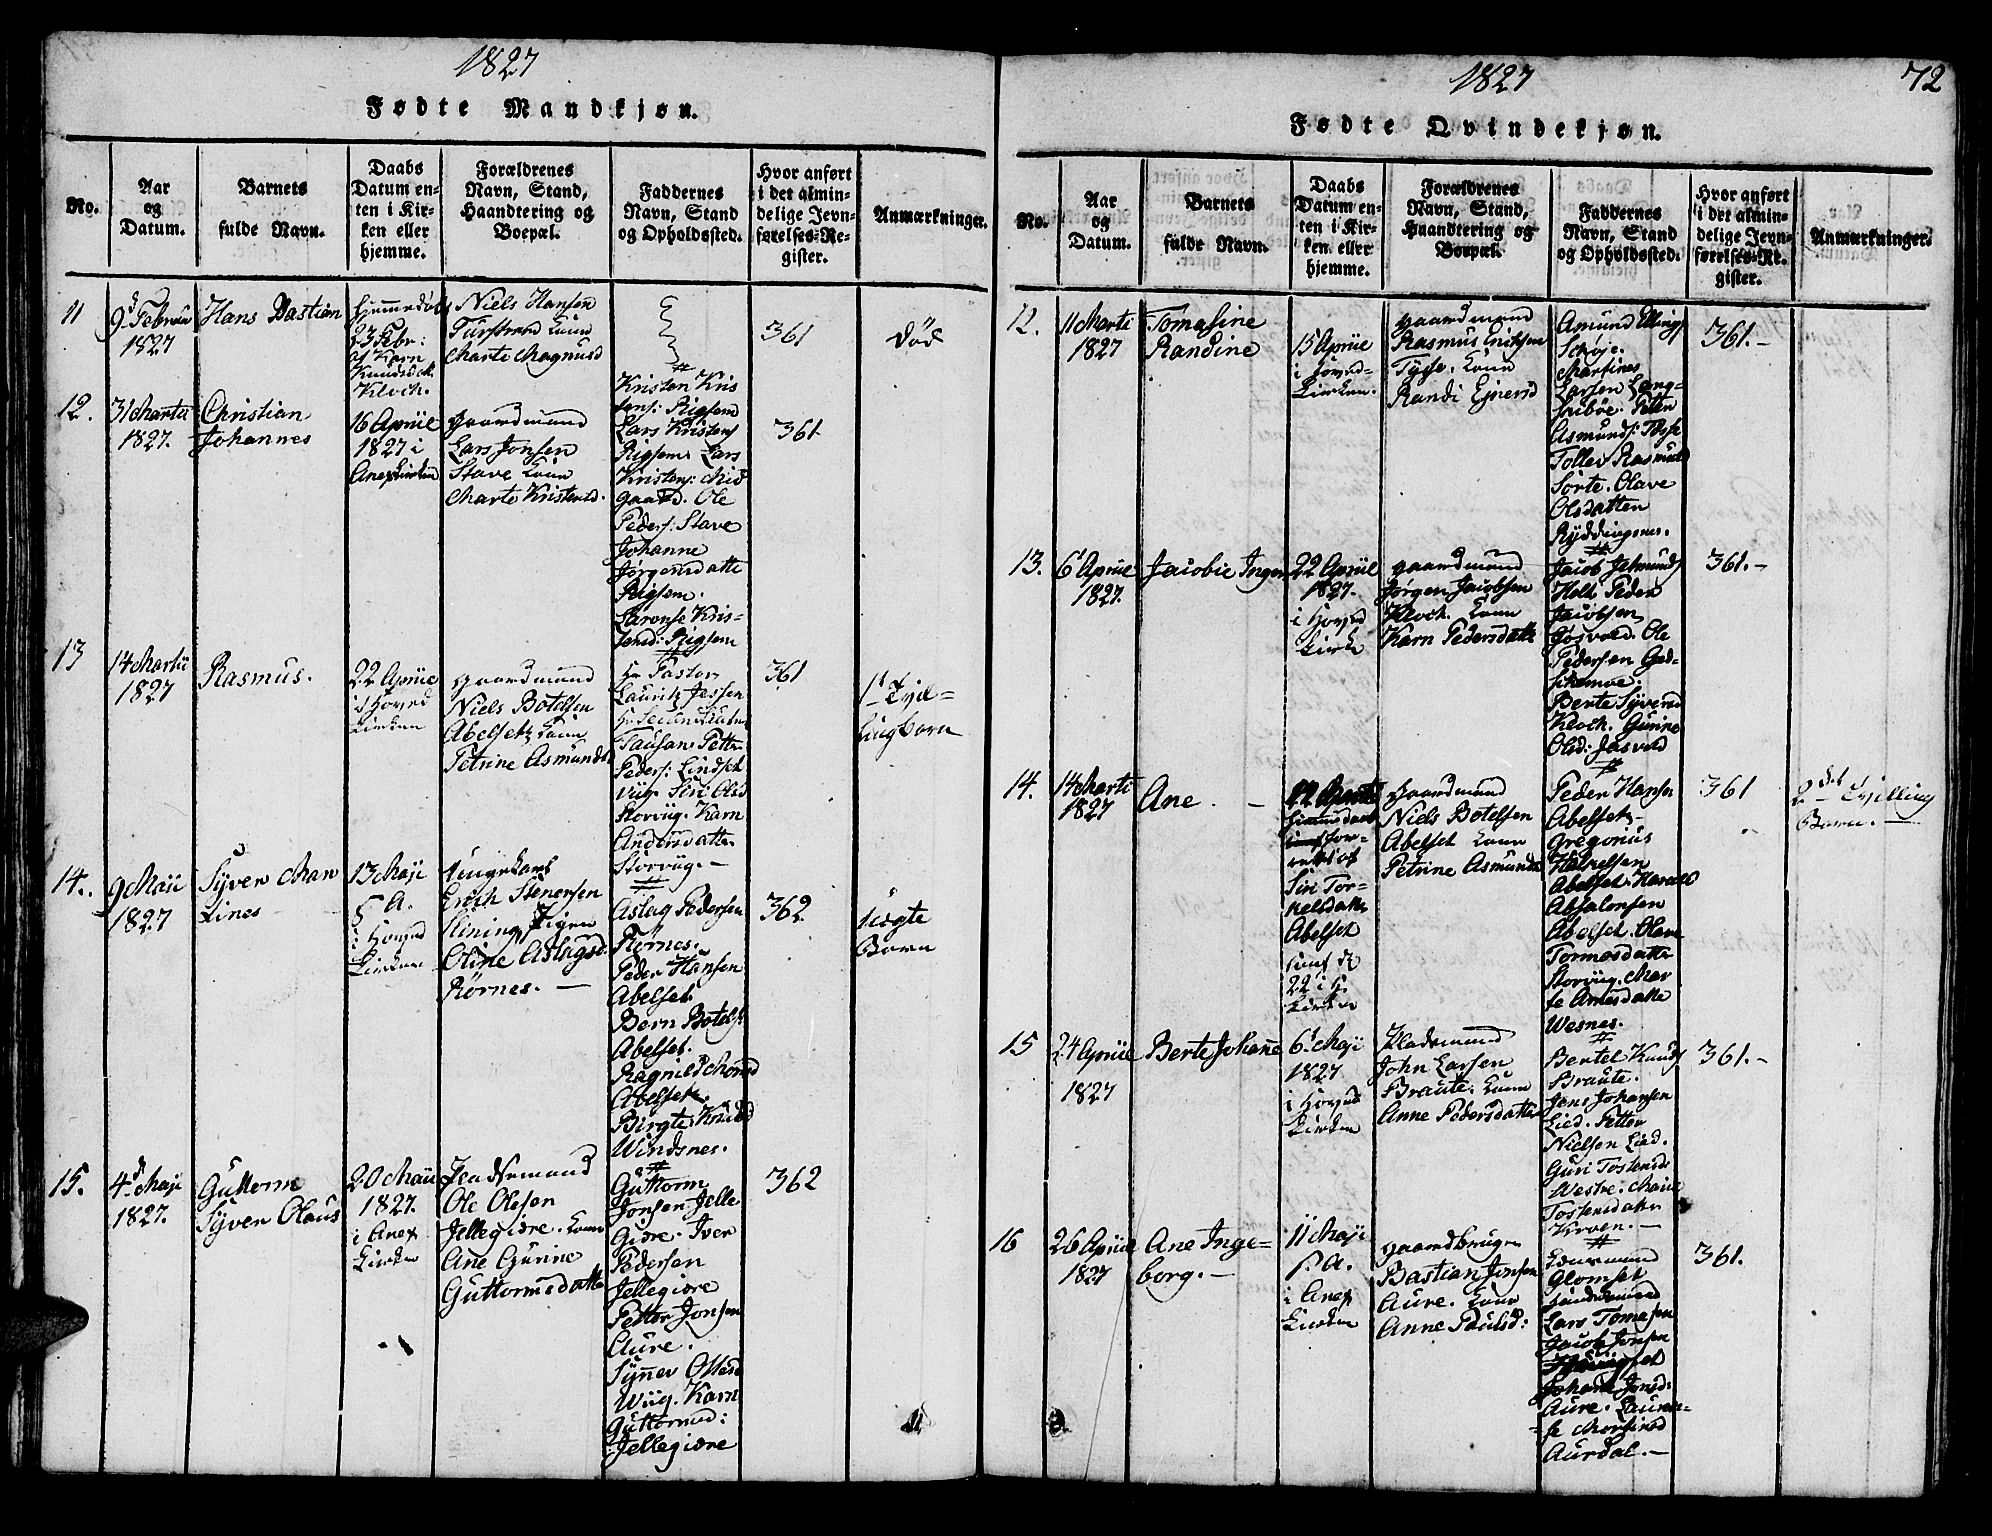 1827
Fødte Mandkjøn.
No.
Aar
og
Datum.
Barnets
fulde Navn.
Daabs
Datum en-
ten i Kir-
ken eller
hjemme.
Forældrenes
Navn, Stand,
Haandtering og
Boepæl.
Faddernes
Navn, Stand
og Opholdssted.
Hvor anført
i det almin-
delige Jevn-
førelses-Re-
gister.
Anmærkninger.
11
9d Februar
1827
Hans Bastian
Hjemmedøbt
23 Febr:
af Karn
Knudsd.
Kloch.
Niels Hansen
Marte Magnusd
361
Død
12.
31 Martii
1827.
Christian
Johannes
16 Apriil
1827 i
Anexkirken
Gaardmand
Lars Jonsen
Stave Kone
Marte Kristensd.
Kristen Kris
tens: Rigsem
Lars Kristens
Rigsem. Lars
Kristens: Mid
gaard. Ole
Peders: Stave
Johanne
Jørgensdatte
Rigsem.
Laronse Kris-
tensd: Rigsem
361
13
14 Martii
1827
Rasmus.
22 Apriil
i Hoved
Kirken
Gaardmand
Niels Botelsen
Abelset Kone
Petrine Asmundsd
Hr Pastor
Lauritz Jessen
Tausan. Petter
Peders: Lindset
viig. Siri Olsd
Storviig. Karn
Andersdatter
Storviig. —
361
1t Tvil-
lingbarn
14.
9 Maii
1827
Syver Mar
Lines
13 Maji
S A.
i Hoved
Kirken
Ungekarl
Erich Stenersen
Stining, Pigen
Oline Aslagsd.
Rørnes. —
Aslag Pedersen
Rørnes.
Peder Hansen
Abelset.
Bern Botels:
Abelset.
Ragnild Monsd
Abelset.
Birgte Knudsd
Windsnes.
362
Uægte
Barn
15.
4d Maji
1827.
Guttorm
Syver Olaus
20 Maii
1827.
i Anex
Kirken
Pladsemand
Ole Olesen
Jellegidre. Kone
Ane Gurine
Guttormsdatte
Guttorm
Jonsen Jelle
Gidre. Iver
Pedersen
Jellegidre
Petter Jonsen
Aure.
Synnev Ottesd
Wiig. Karn
Guttormsd:
Jellegidre
362
1827
72
Fødte Qvindekjøn.
No.
Aar
og
Datum.
Barnets
fulde Navn.
Daabs
Datum en-
ten i Kir-
ken eller
hjemme.
Forældrenes
Navn, Stand,
Haandtering og
Boepæl.
Faddernes
Navn, Stand
og Opholdssted.
Hvor anført
i det almin-
delige Jevn-
førelses-Re-
gister.
Anmærkninger.
12.
11 Marti
1827
Tomasine
Randine
15 Apriil
i Hoved-
Kirken.
Gaardmand
Rasmus Erichsen
Tysse. Kone
Randi Ejnersd
Amund Ellings
Schøje.
Martines
Larsen Lang-
sribøe. Petter
Asmunds: Tysse
Tollev Rasmusd
Sorte. Olave
Olsdatter
Ryddingsnes.
361.-
13.
6t Apriil
1827.
Jacobie Inger
22 Apriil
1827.
i Hoved
Kirke
Gaardmand
Jørgen Jacobsen
Kloch. Kone
Karn Pedersdatte
Jacob Jetmunds
Holt. Peder
Jacobsen
Gøsvold. Ole
Pedersen God-
schemoe.
Berte Syversd
Kloch. Gurine
Olsd: Josvold
361.-
14.
14 Marti
1827
Ane. —
Siri Tor-
kelsdatte
Abelset
22 i H.
Kirken
Gaardmand
Niels Botelsen
Abelset Kone
Petrine Asmunds
Peder Hansen
Abelset.
Gregorius
Halvelsen
Abelset. Harald
Absalonsen
Abelset. Olave
Tormosdatte
Storviig. Mar
te Arnesdatte
Wesnes.
361
2det Tvilling
Barn.
15
24 Apriil
1827
Berte Johanne
6t Maji
1827
i Hoved
Kirken
Pladsmand
John Larsen
Braute. Kone
Anne Pedersdatter
Bertel Knuds
Braute.
Jens Johansen
Lied. Petter
Nielsen Lied.
Guri Tostensd
Westre. Marie
Tostensdatter
Kroven. —
361.-
16
26 Apriil
1827
Ane Inge-
borg. —
11 Maji
S. A.
i Anex
Kirken
Gaardbruger
Bastian Jonsen
Aure. Kone
Anne Paulsd:
Glomset
Lars Tomesen
Jacob Jonsen
Johane Jonsd:
Aure. Lauren-
se Mortensd
Aurdal. —
361.